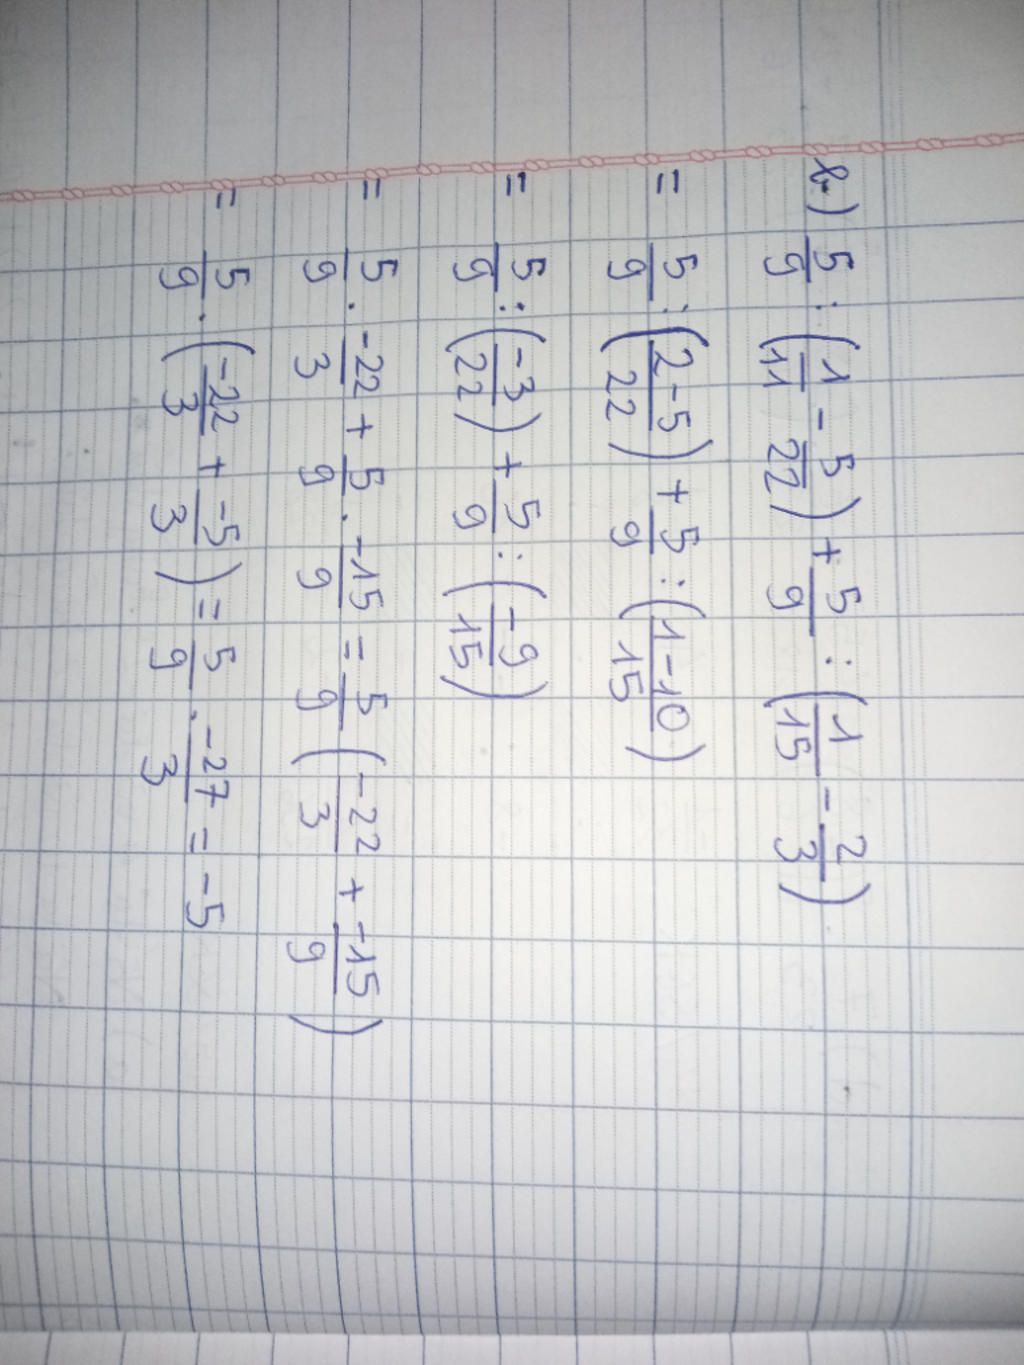 b) 5/9 : (1/11 - 5/22) + 5/9 : (1/15 - 2/3)
= 5/9 : (2-5/22) + 5/9 : (1-10/15)
= 5/9 : (-3/22) + 5/9 : (-9/15)
= 5/9 . -22/3 + 5/9 . -15/9 = 5/9 (-22/3 + -15/9)
= 5/9 . (-22/3 + -5/3) = 5/9 . -27/3 = -5